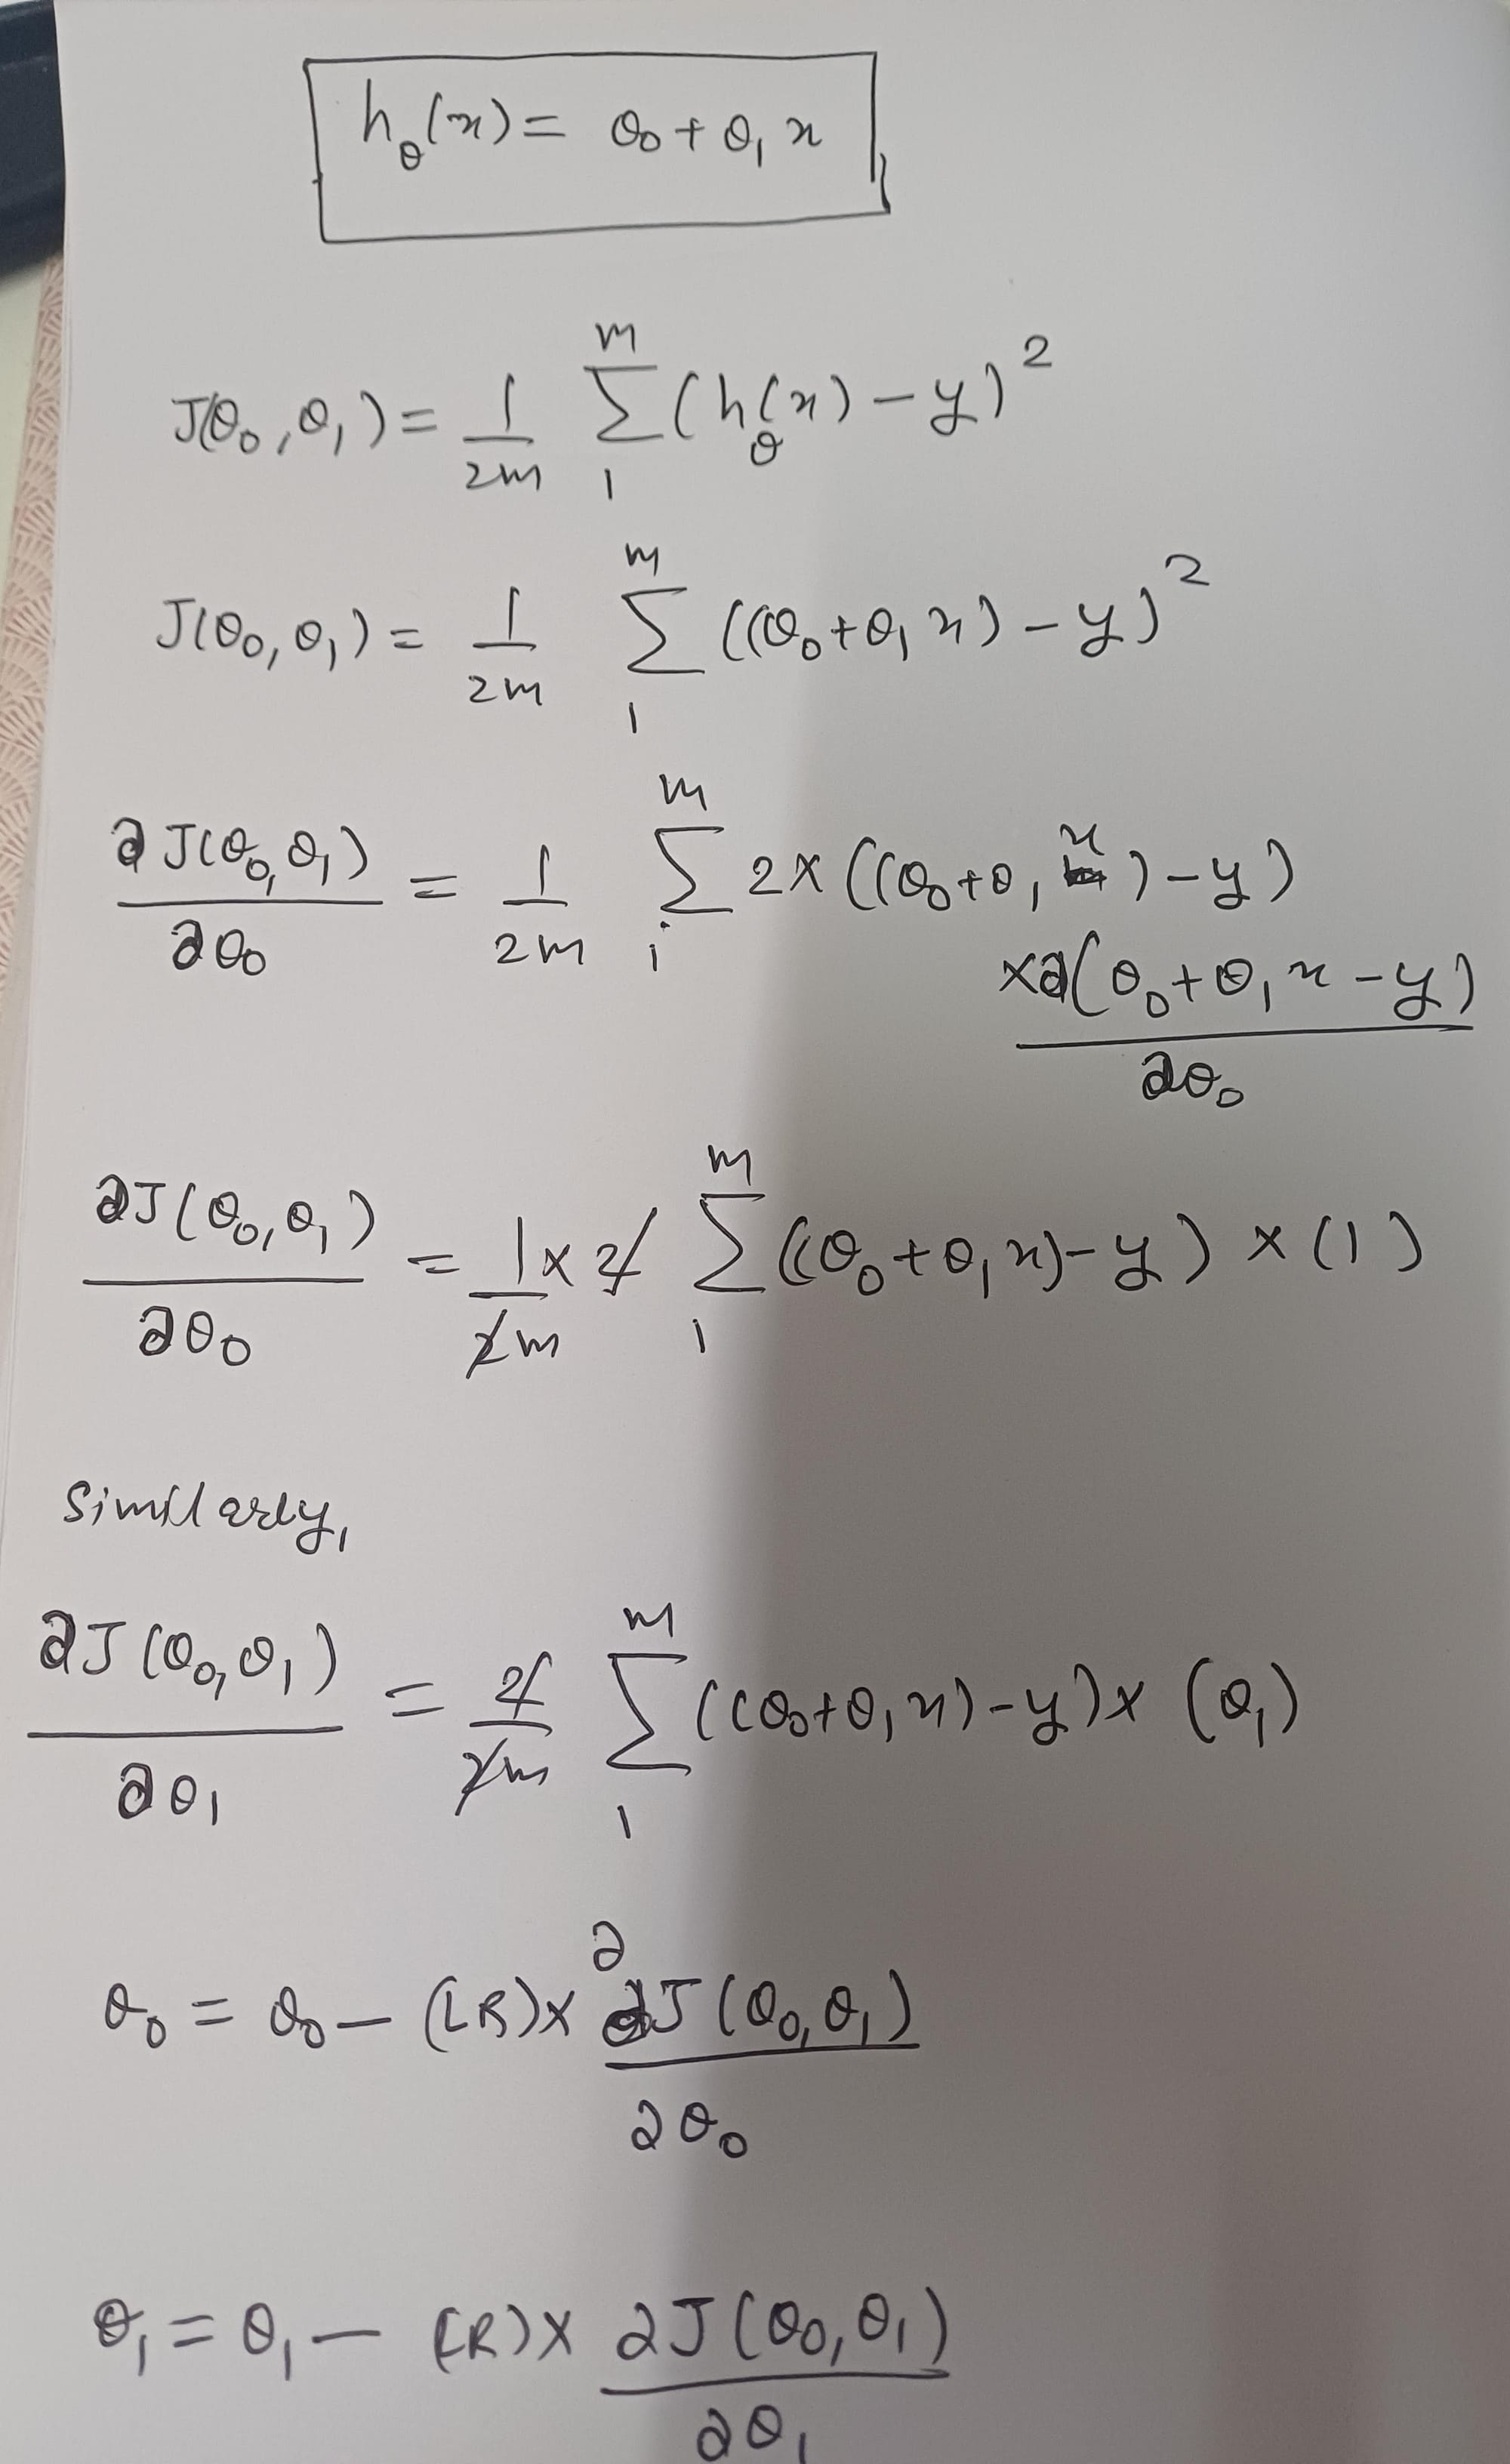 h_θ(x) = θ₀ + θ₁ x
J(θ₀, θ₁) = 1/2m Σ₁ᵐ (h_θ(x) - y)²
J(θ₀, θ₁) = 1/2m Σ₁ᵐ ((θ₀ + θ₁ x) - y)²
∂J(θ₀, θ₁)/∂θ₀ = 1/2m Σᵢᵐ 2 × ((θ₀ + θ₁ x) - y)
× ∂(θ₀ + θ₁ x - y)/∂θ₀
∂J(θ₀, θ₁)/∂θ₀ = 1 × 2/2m Σ₁ᵐ ((θ₀ + θ₁ x) - y) × (1)
Similarly,
∂J(θ₀, θ₁)/∂θ₁ = 2/2m Σ₁ᵐ ((θ₀ + θ₁ x) - y) × (θ₁)
θ₀ = θ₀ - (LR) × ∂J(θ₀, θ₁)/∂θ₀
θ₁ = θ₁ - (LR) × ∂J(θ₀, θ₁)/∂θ₁